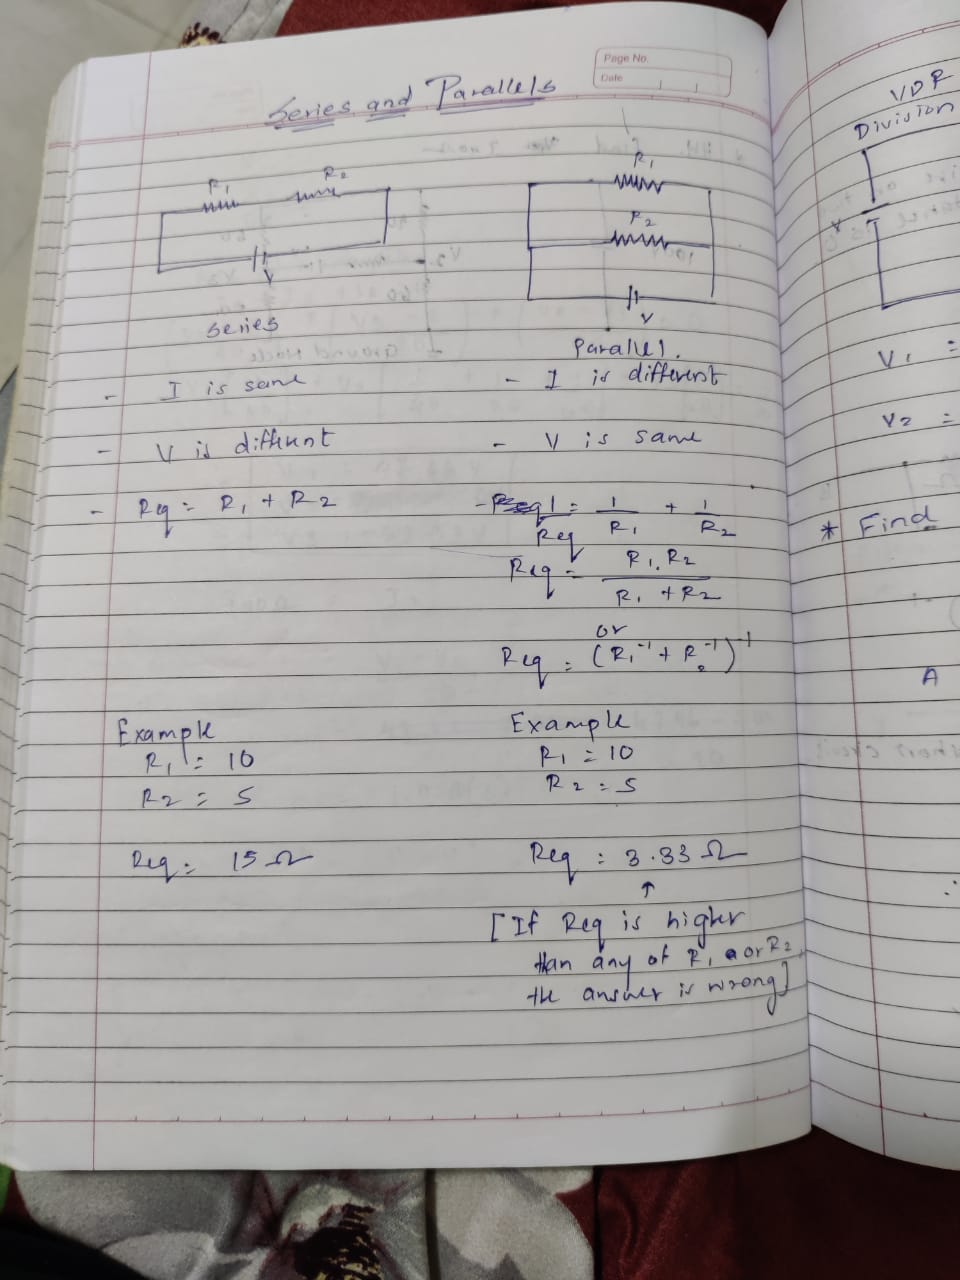 Page No.
Date
Series and Parallels
R1 R2
V
Series
- I is same
- V is different
- Req = R1 + R2
Example
R1 = 10
R2 = 5
Req = 15 Ω
R1
R2
V
Parallel.
- I is different
- V is same
- 1/Req = 1/R1 + 1/R2
Req = R1.R2 / R1 + R2
or
Req = (R1⁻¹ + R2⁻¹)⁻¹
Example
R1 = 10
R2 = 5
Req = 3.33 Ω
↑
[If Req is higher
than any of R1 or R2,
the answer is wrong]
VDR
Division
V
V1 =
V2 =
* Find
A